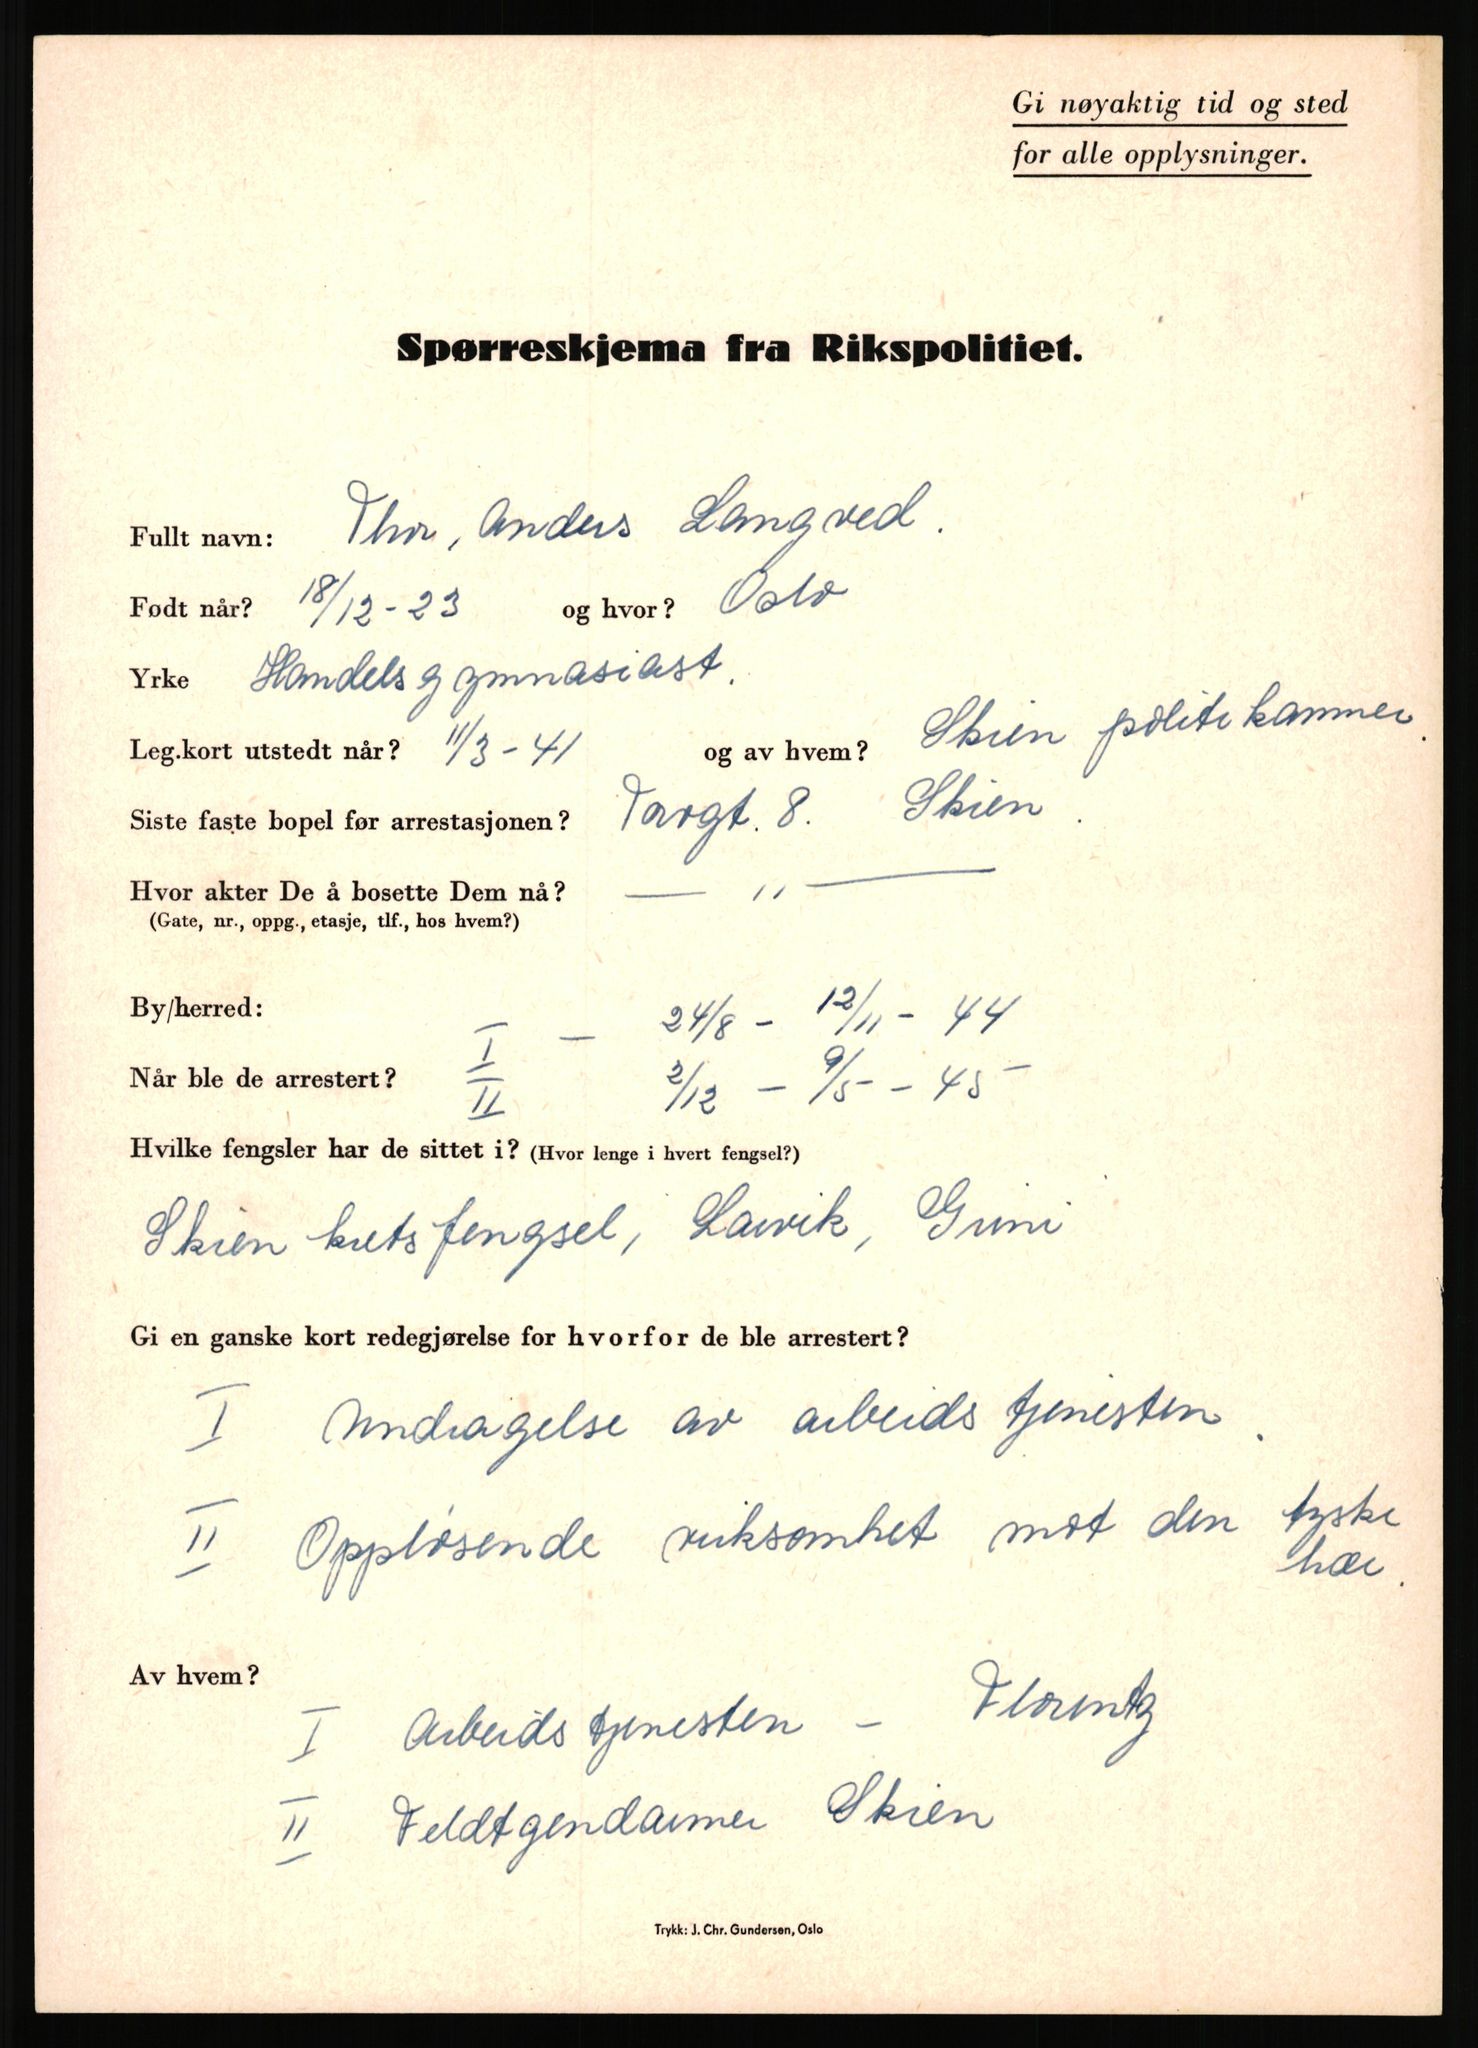 Gi nøyaktig tid og sted
for alle opplysninger.
Spørreskjema fra Rikspolitiet.
Fullt navn: Thor, Anders Langved.
Født når? 18/12-23 og hvor? Oslo
Yrke Handelsgymnasiast.
Leg.kort utstedt når? 11/3-41 og av hvem? Skien politikammer.
Siste faste bopel før arrestasjonen? Torvgt. 8. Skien.
Hvor akter De å bosette Dem nå? — " —
(Gate, nr., oppg., etasje, tlf., hos hvem?)
By/herred:
I — 24/8 - 12/11 - 44
Når ble de arrestert? II 2/12 - 9/5 - 45
Hvilke fengsler har de sittet i? (Hvor lenge i hvert fengsel?)
Skien kretsfengsel, Larvik, Grini
Gi en ganske kort redegjørelse for hvorfor de ble arrestert?
I Unndragelse av arbeidstjenesten.
II Oppløsende virksomhet mot den tyske
hær.
Av hvem?
I Arbeidstjenesten -
II Feldtgendarmer Skien
Trykk: J. Chr. Gundersen, Oslo